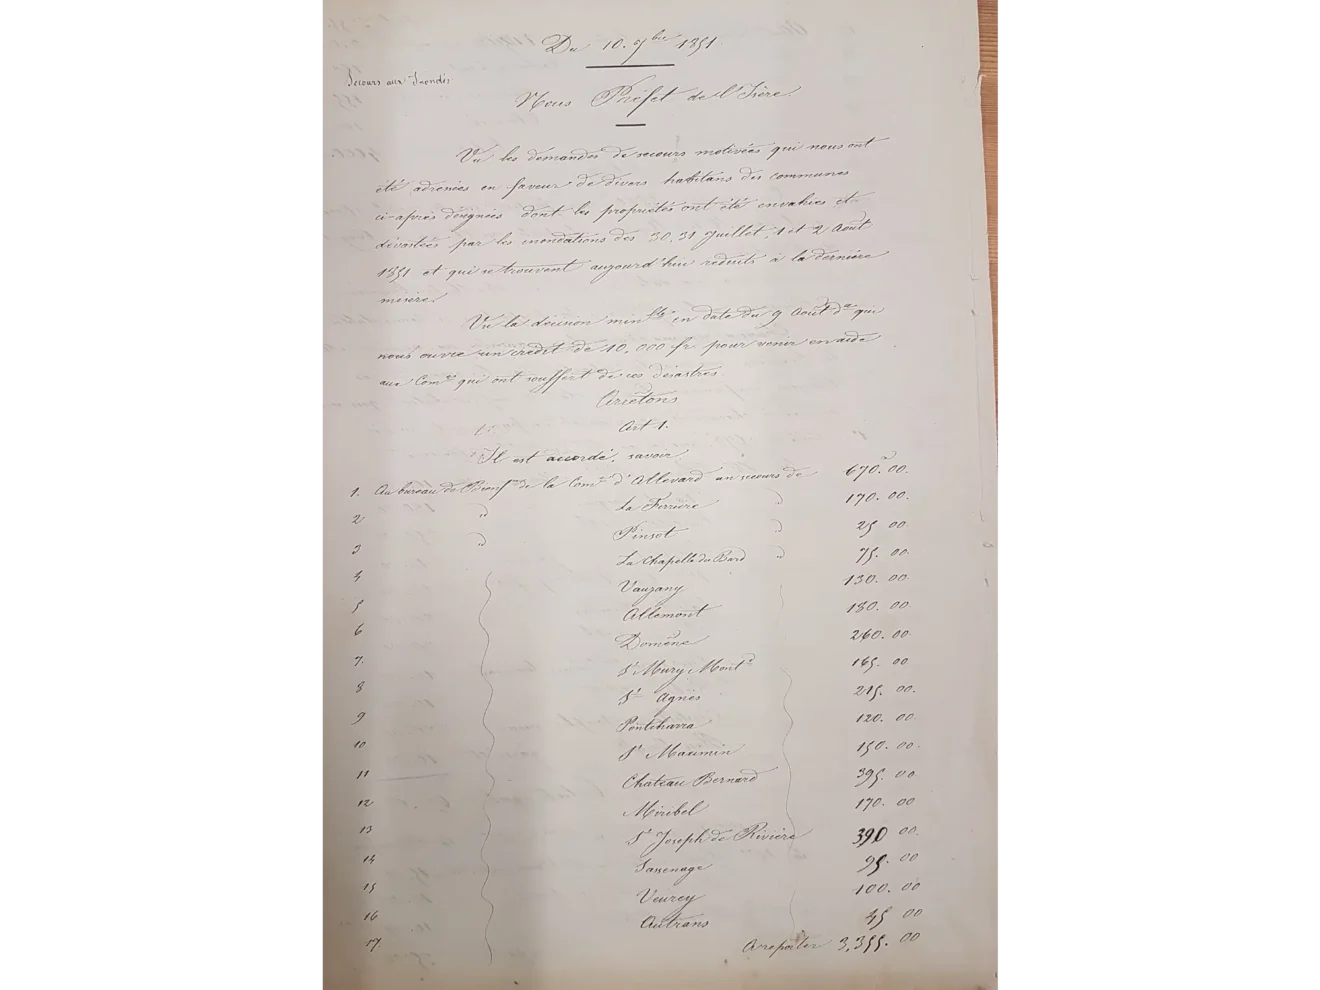 Du 10. 7bre 1851.
Secours aux Inondés
Nous Préfet de l'Isère
Vu les demandes de secours motivées qui nous ont
été adressées en faveur de divers habitans des communes
ci-après désignées dont les propriétés ont été envahies et
dévastées par les inondations des 30, 31 Juillet, 1 et 2 Août
1851 et qui se trouvent aujourd'hui réduits à la dernière
misère.
Vu la décision minlle en date du 9 Août dr qui
nous ouvre un crédit de 10,000 fr pour venir en aide
aux Comes qui ont souffert de ces désastres.
Arrêtons
Art 1.
Il est accordé, savoir
1. Au bureau de Bienfce de la Come d'Allevard un secours de 670. 00.
2 " La Ferrière " 170. 00.
3 " Pinsot " 25 00
4 La Chapelle du Bard " 75. 00
5 Vaujany 130. 00
6 Allemont 180. 00
7. Domène 260. 00
8 St Mury Montd 165. 00
9 Ste Agnès 215. 00.
10 Pontcharra 120. 00
11 St Maximin 150. 00.
12 Chateau Bernard 395. 00
13 Miribel 170. 00
14 St Joseph de Rivière 390 00.
15 Sassenage 95. 00
16 Veurey 100. 00
17. Autrans 45 00
A reporter 3,355. 00